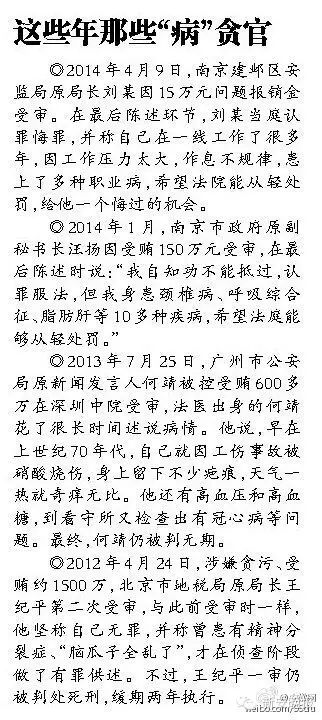 这些年那些“病”贪官
◎2014年4月9日,南京建邺区安
监局原局长刘某因15万元问题报销金
受审。在最后陈述环节,刘某当庭认
罪悔罪,并称自己在一线工作了很多
年,因工作压力太大,作息不规律,患
上了多种职业病,希望法院能从轻处
罚,给他一个悔过的机会。
◎2014年1月,南京市政府原副
秘书长汪扬因受贿150万元受审,在最
后陈述时说:“我自知功不能抵过,认
罪服法,但我身患颈椎病、呼吸综合
征、脂肪肝等10多种疾病,希望法庭能
够从轻处罚。”
◎2013年7月25日,广州市公安
局原新闻发言人何靖被控受贿600多
万在深圳中院受审,法医出身的何靖
花了很长时间述说病情。他说,早在
上世纪70年代,自己就因工伤事故被
硝酸烧伤,身上留下不少疤痕,天气一
热就奇痒无比。他还有高血压和高血
糖,到看守所又检查出有冠心病等问
题。最终,何靖仍被判无期。
◎2012年4月24日,涉嫌贪污、受
贿约1500万,北京市地税局原局长王
纪平第二次受审,与此前受审时一样,
他坚称自己无罪,并称曾患有精神分
裂症、“脑瓜子全乱了”,才在侦查阶段
做了有罪供述。不过,王纪平一审仍
被判处死刑,缓期两年执行。